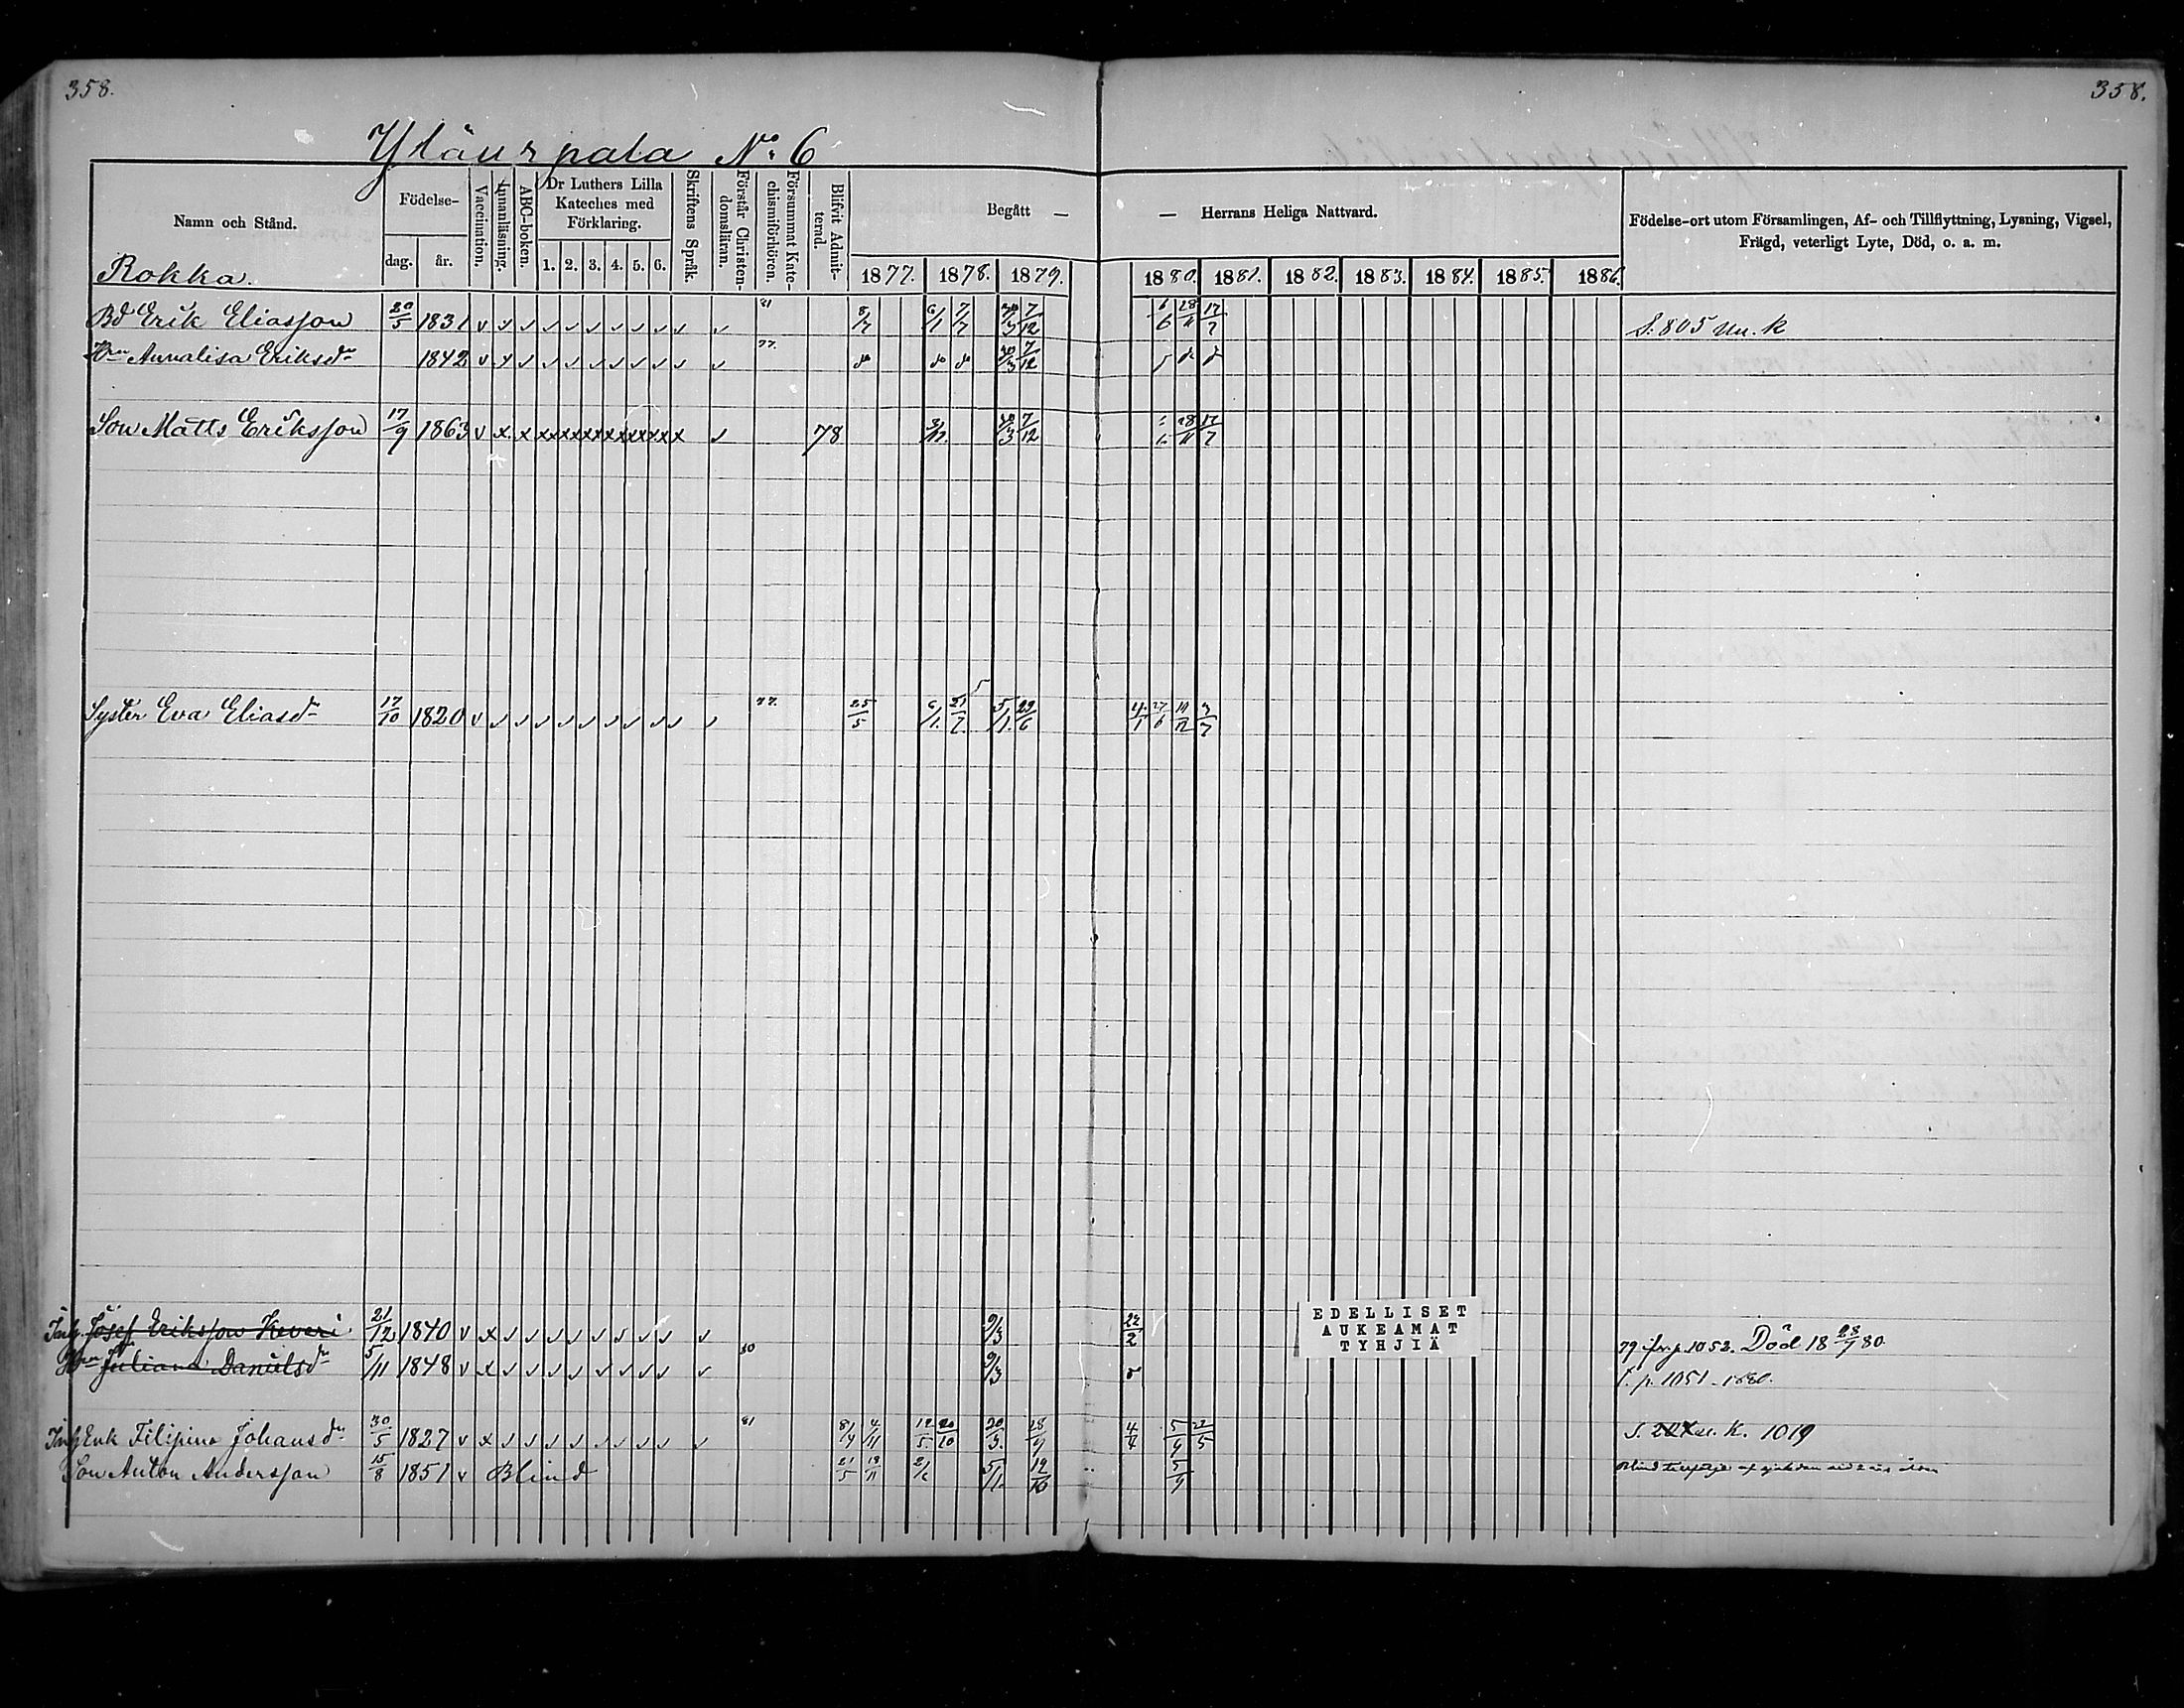 358. 358.
Yläurpala No 6
Namn och Stånd. Födelse- dag. år. Vaccination. Innanläsning. ABC-boken. Dr Luthers Lilla Kateches med Förklaring. 1. 2. 3. 4. 5. 6. Skriftens Språk. Förstår Christendomsläran. Försummat Katechismiförhören. Blifvit Admitterad. Begått — — Herrans Heliga Nattvard. Födelse-ort utom Församlingen, Af- och Tillflyttning, Lysning, Vigsel, Frägd, veterligt Lyte, Död, o. a. m.
1877. 1878. 1879. 1880. 1881. 1882. 1883. 1884. 1885. 1886.
Rokka.
Bd Erik Eliasson 20/5 1831 v v v v v v v v v v v 81 8/7 6/1 7/7 30/3 7/12 6/6 28/11 17/7 S. 805 Un. K
Hru Annalisa Eriksdr 1842 v v v v v v v v v v v 77. do do do 30/3 7/12
Son Matts Eriksson 17/9 1863 v x x xxxxxxxxxxxx x v 78 30/3 7/12 28/11 17/7
Syster Eva Eliasdr 17/10 1820 v v v v v v v v v v v 77. 25/5 6/1. 21/7. 5/1. 29/6 4/1 27/6 3/7
Inh. Josef Eriksson Keveri 21/12 1840 v x v v v v v v v v 9/3 22/2 79 ifr. p. 1052. Död 18 28/7 80.
Hru Juliana Danielsdr 5/11 1848 v x v v v v v v v v 80 9/3 t. p. 1051 - 1880.
Inh Enk Filipina Johansdr 30/5 1827 v x v v v v v v v v 81 8/4 4/11 12/5. 20/10 20/3. 28/9 4/4 5/9 22/5 S. K. 1019
Son Anton Andersson 15/8 1851 v Blind 21/5 18/11 5/1. 12/10 5/9 Blind
EDELLISET
AUKEAMAT
TYHJIÄ